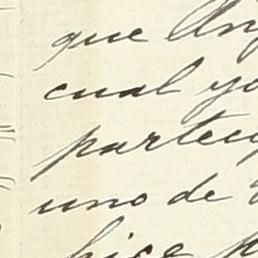 que Ang
cual yo
partey
uno de
hice p